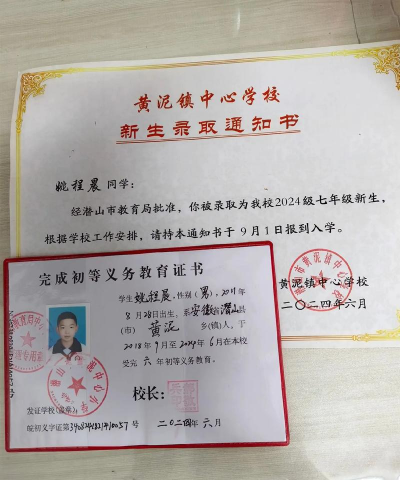 黄泥镇中心学校
新生录取通知书
姚程晨 同学：
经潜山市教育局批准，你被录取为我校2024级七年级新生，
根据学校工作安排，请持本通知书于 9月1日报到入学。
黄泥镇中心学校
二〇二四年六月
完成初等义务教育证书
学生姚程晨，性别（男），2011年
8月28日出生，系安徽省潜山县
（市）黄泥乡（镇）人，于
2018年9月至2024年6月在本校
受完六年初等义务教育。
校长：
发证学校（盖章）：
二〇二四年六月